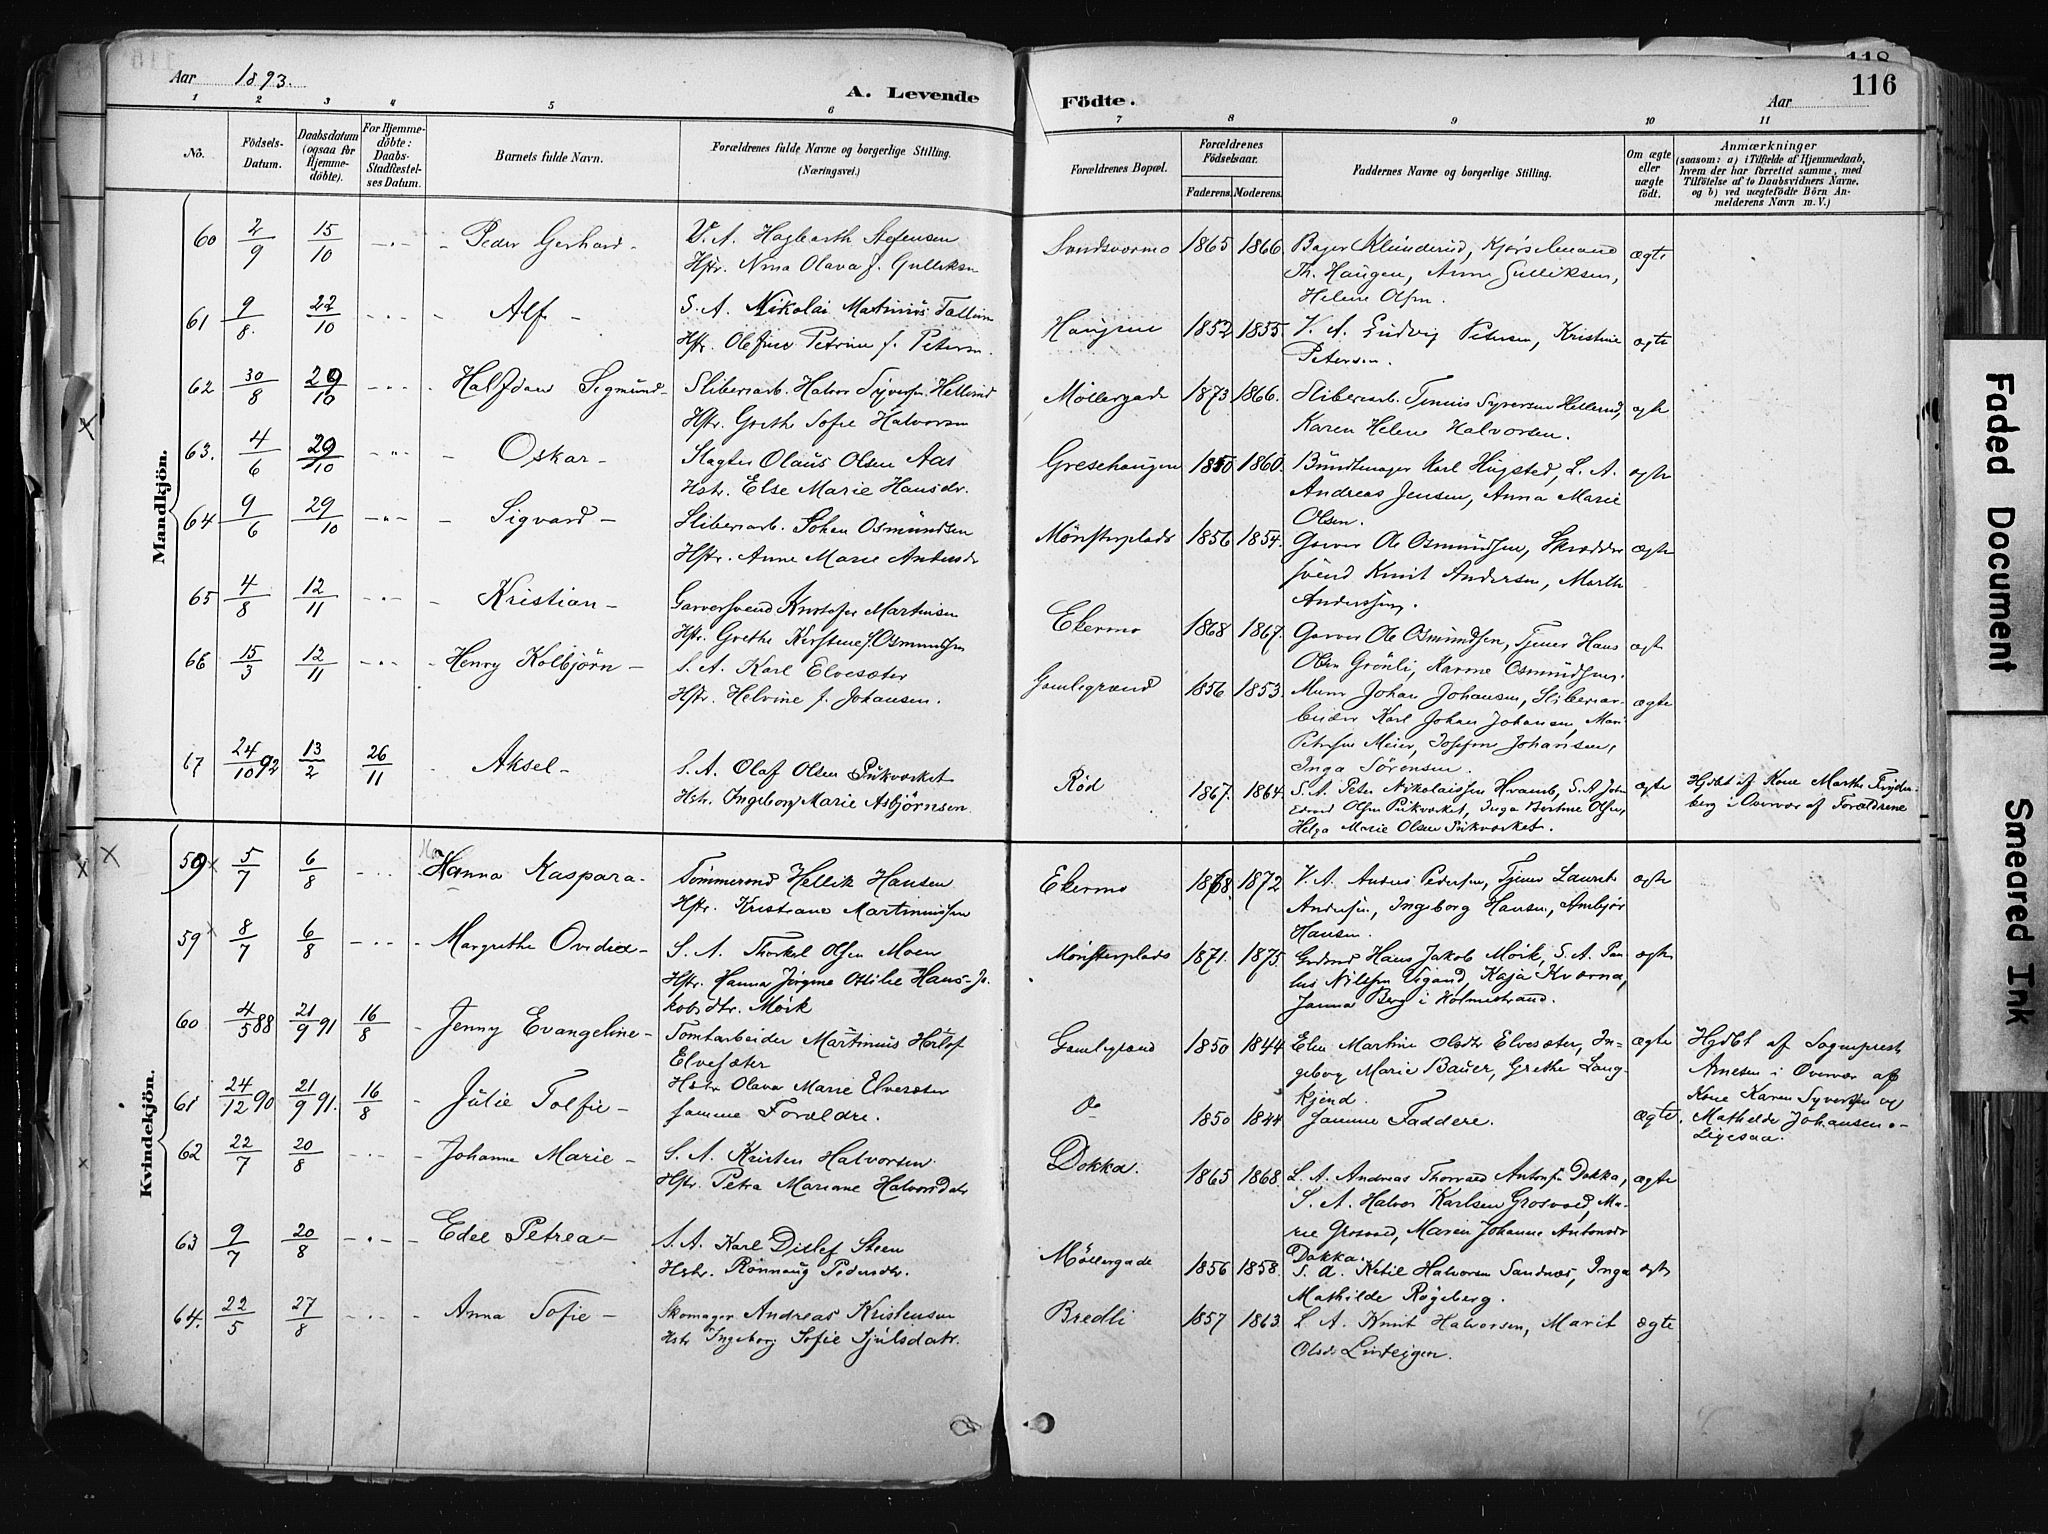 Aar 1893.
A. Levende
Födte.
Aar
116
118
1 2 3 4 5 6 7 8 9 10 11
No.
Födsels-Datum.
Daabsdatum (ogsaa for Hjemme-döbte).
For Hjemme-döbte: Daabs-Stadfæstel-ses Datum.
Barnets fulde Navn.
Forældrenes fulde Navne og borgerlige Stilling. (Næringsvei.)
Forældrenes Bopæl.
Forældrenes Födselsaar.
Faderens. Moderens.
Faddernes Navne og borgerlige Stilling.
Om ægte eller uægte födt.
Anmærkninger
(saasom: a) i Tilfælde af Hjemmedaab, hvem der har forrettet samme, med Tilföielse af to Daabsvidners Navne, og b) ved uægtefödte Börn An-melderens Navn m. V.)
Mandkjön.
60 2/9 15/10 - " - Peder Gerhard - V. A. Hagbarth Stefensen
Hstr. Nina Olava f. Gulliksn
1865 1866 Bager
Th. Haugen, Anne Gulliksen,
Helene Olsen.
ægte
61 9/8. 22/10 - " - Alf - S. A. Nikolai Martinius
Hstr. Petrine f. Petersn.
Haugene 1852 1855. V. A. Ludvig Petersen, Kristine
Petersen.
ægte
62 30/8 29/10 - " - Halfdan Sigmund - Sliberiarb. Halvor Syversen Hellerud
Hstr. Grethe Sofie Halvorsn
Möllergade 1873. 1866. Sliberiarb. Syversen Hellerud,
Karen Helene Halvorsen.
ægte
63. 4/6 29/10 - " - Oskar - Slagter Olaus Olsen Aas
Hstr. Else Marie Hansdr.
Gresehaugen 1850 1860. Bundtmager Karl Hugsted, L. A.
Andreas Jensen, Anna Marie
Olsen.
ægte
64 9/6 29/10 - " - Sigvard - Sliberiarb. Johan Osmundsen
Hstr. Anne Marie
Mönsterplads 1856 1854. Garver Ole Osmundsen, Skrædder
svend Knut Andersen, Marthe
Anderssen.
ægte
65 4/8 12/11 - " - Kristian - Garversvend Kristofer Martinsen
Hstr. Grethe Kirstine f. Osmundsen
Ekermo 1868 1867. Garver Ole Osmundsen, Tjener Hans
Olsen Grönli, Karine Osmundsen.
ægte
66 15/3 12/11 - " - Henry Kolbjörn - S. A. Karl Elvesæter
Hstr. Helvine f. Johansen.
Gamlegrænd 1856 1853. Murer Johan Johansen, Sliberiar-
beider Karl Johan Johansen,
Meier, Josefine Johansen,
Inga Sörensen.
ægte
67 24/10 92 13/2 26/11 Aksel - S. A. Olaf Olsen Pukværket
Hstr. Ingeborg Marie Asbjörnsen.
Röd 1867. 1864. S. A. Peter Nikolaissen Hvamb, S. A. Joh.
Edvard Olsen Pukværket, Inga Bertine Olsen,
Helga Marie Olsen Pukværket.
ægte
Hjdbt af Kone Marthe
berg i Overvær af Forældrene
Kvindekjön.
x 59 x 5/7 6/8 - " - Hanna Kaspara - Tömmermd Hellik Hansen
Hstr. Kristiane Martiniussen
Ekermo 1868. 1872 V. A. Andres Pedersen, Tjener Laurits
Andersen, Ingeborg Hansen,
Hansen.
ægte
59 x 8/7 6/8 - " - Margrethe Ovidia - S. A. Thorkel Olsen Moen
Hstr. Hanna Jörgine Otilie Hans-Ja-
kobsdtr. Möik
Mönsterplads 1871. 1875. Hans Jakob Möik, S. A. Pau-
lus Nilsen Vigand, Kaja Kværna,
Janna Berg i Holmestrand.
ægte
60 4/5 88 21/9 91 16/8 - Jenny Evangeline - Tomtarbeider Martinius Herlof
Elvesæter
Hstr Olava Marie Elvesæter
Gamlegrænd 1850 1844 Elen Martine Olsdtr Elvesæter, In-
geborg Marie Bauer, Grethe Lang-
kjend.
ægte
Hjdbt af Sogneprest
Arnesen i Overvær af
Kone Karen Syversen og
Mathilde Johansen
Ligesaa.
61 24/12 90 21/9 91. 16/8 - Julie Tolfie - samme Forældre.
Do 1850 1844 Samme Faddere.
ægte.
62 22/7 20/8 - " - Johanne Marie - S. A. Kristen Halvorsen.
Hstr. Petra Mariane Halvorsdatr
Dokka. 1865 1868. L. A. Andreas Thorvald Antonsen Dokka,
S. A. Halvor Karlsen Grosvold, Ma-
rie Grosvold, Maren Johanne Antonsdr
Dokka.
ægte
63 9/7 20/8 - " - Edel Petrea - S. A. Karl Ditlef Steen
Hstr. Rönnaug Pedersdtr.
Möllergade 1856 1858. S. A. Ketil Halvorsen Sandnes, Inga
Mathilde Röyeberg.
ægte
64. 22/5 27/8 - " - Anna Sofie - Skomager Andreas Kristensen
Hstr Ingeborg Sofie Tjulsdatr.
Bredli 1857 1863. L. A. Knut Halvorsen, Marit
Olsdr Linteigen.
ægte
Faded Document
Smeared Ink